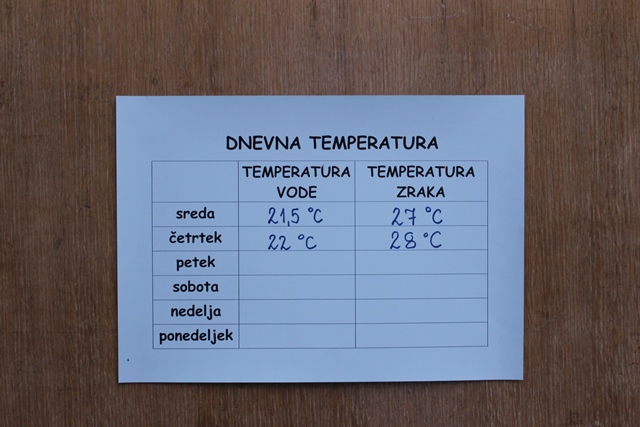 DNEVNA TEMPERATURA
TEMPERATURA VODE TEMPERATURA ZRAKA
sreda 21,5 °C 27 °C
četrtek 22 °C 28 °C
petek
sobota
nedelja
ponedeljek